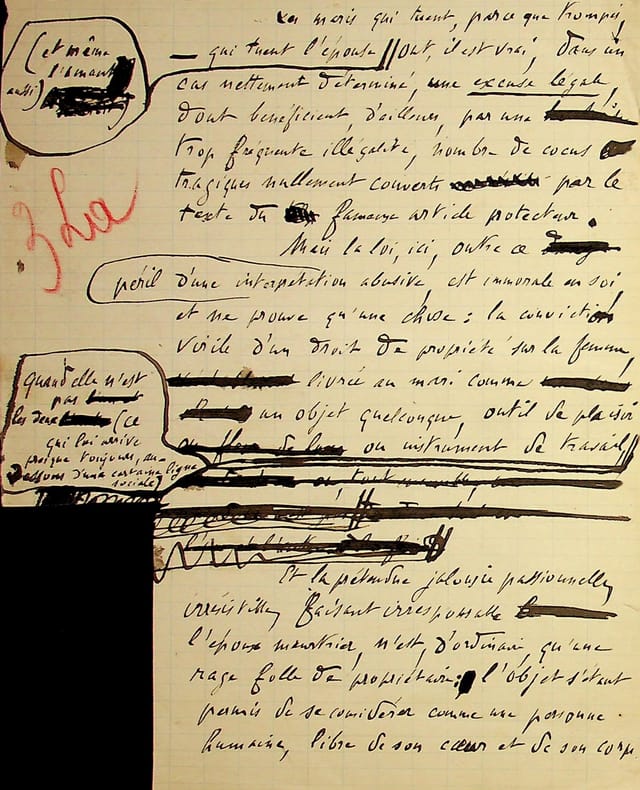 Les maris qui tuent, parce que trompés,
(et même
l'amant
aussi)
— qui tuent l'épouse || ont, il est vrai, dans un
cas nettement déterminé, une excuse légale,
dont bénéficient, d'ailleurs, par une
trop fréquente illégalité, nombre de cocus
tragiques nullement couverts par le
texte du fameux article protecteur.
3 La
Mais la loi, ici, outre ce
péril d'une interprétation abusive, est immorale en soi,
et ne prouve qu'une chose : la conviction
virile d'un droit de propriété sur la femme,
livrée au mari comme
un objet quelconque, outil de plaisir
ou instrument de travail ||
quand elle n'est
pas
les deux (ce
qui lui arrive
presque toujours, au-
dessous d'une certaine ligne
sociale)
Et la prétendue jalousie passionnelle,
irrésistible, faisant irresponsable
l'époux meurtrier, n'est, d'ordinaire, qu'une
rage folle de propriétaire : l'objet s'étant
permis de se considérer comme une personne
humaine, libre de son cœur et de son corps